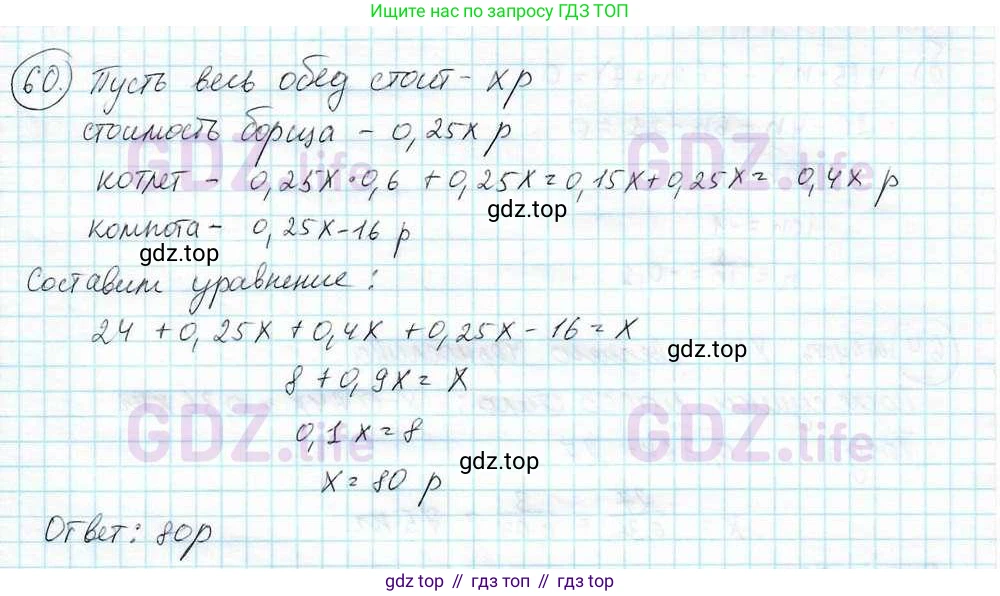 Ищите нас по запросу ГДЗ ТОП
60. Пусть весь обед стоит - х р
стоимость борща - 0,25х р
котлет - 0,25х·0,6 + 0,25х = 0,15х + 0,25х = 0,4х р
gdz.top
компота - 0,25х-16 р
gdz.top
Составим уравнение:
24 + 0,25х + 0,4х + 0,25х - 16 = х
gdz.top
8 + 0,9х = х
0,1х = 8
gdz.top
х = 80 р
Ответ: 80р
GDZ.life
GDZ.life
GDZ.life
GDZ.life
gdz top // гдз топ // gdz top